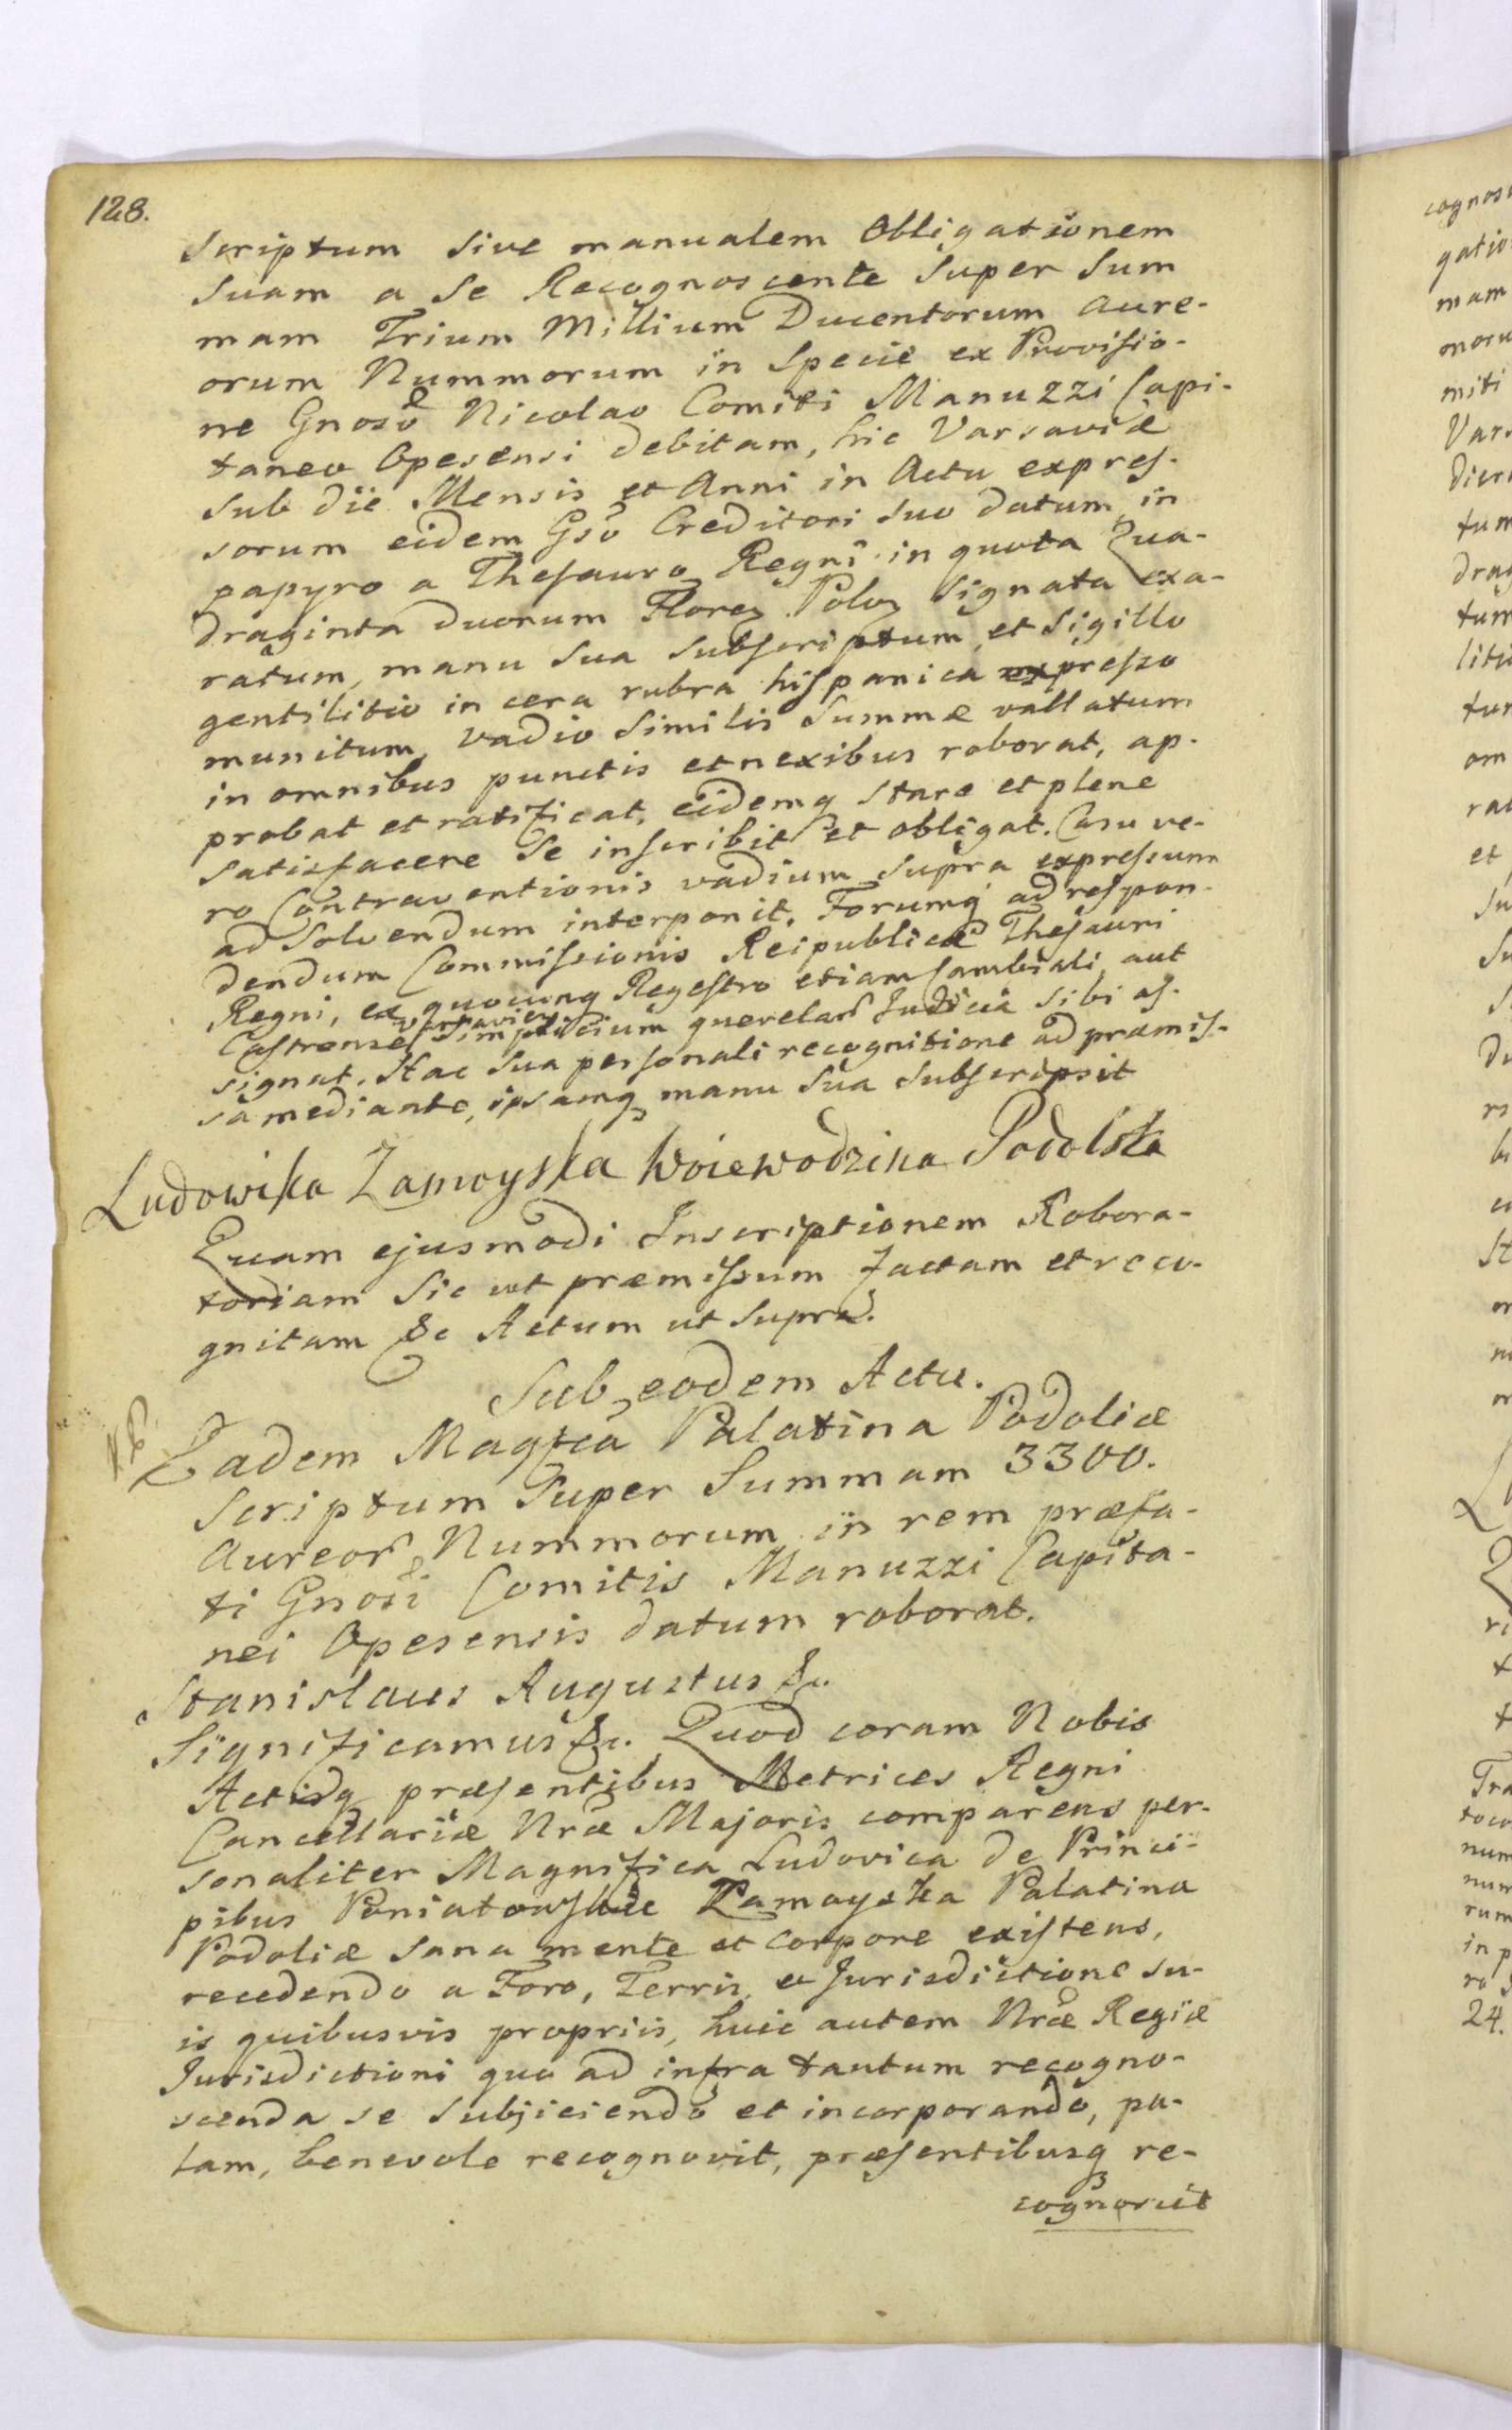 128.
scriptum sive manualem Obligationem
suam a se Recognoscente super Sum
mam Trium Millium Ducentorum aure-
orum Nummorum in Specie ex Provisio-
ne Gnoso Nicolao Comiti Manuzzi Capi-
taneo Opesensi debitam, hic Varsaviæ
sub die Mensis et Anni in Actu expres-
sorum eidem Gso Creditori suo datum in
papyro a Thesauro Regni in quota Qua-
draginta duorum Floreg Polog signata exa-
ratum, manu sua subscriptum, et sigillo
gentilitio in cera rubra hispanica expresso
munitum, vadio similis Summæ vallatum
in omnibus punctis et nexibus roborat, ap-
probat et ratificat, eidemq stare et plene
satisfacere se inscribit et obligat. Casu ve-
ro Contraventionis vadium supra expressum
ad solvendum interponit. Forumq ad respon-
dendum Commissionis Reipublicæ Thesauri
Regni, ex quocunq Regestro etiam Cambiali, aut
Castrense simplicium querelar Judicia sibi as-
signat. Hac sua personali recognitione ad præmis-
sa mediante, ipsamq manu sua subscripsit
Ludowika Zamoyska Woiewodzina Podolska
Quam ejusmodi Inscriptionem Robora-
toriam sic ut præmissum factam et reco-
gnitam &c Actum ut supra.
Sub eodem Actu.
Eadem Magfca Palatina Podoliæ
scriptum super Summam 3300.
Aureor Nummorum in rem præfa-
ti Gnosi Comitis Manuzzi Capita-
nei Opesensis datum roborat.
Stanislaus Augustus &c.
Significamus &c. Quod coram Nobis
Actisq præsentibus Metrices Regni
Cancellariæ Nræ Majoris comparens per-
sonaliter Magnifica Ludovica de Princi-
pibus Poniatowskie Zamoyska Palatina
Podoliæ sana mente et corpore existens,
recedendo a Foro, Terris et Jurisdictione su-
is quibusvis propriis, huic autem Nræ Regiæ
Jurisdictioni quo ad infra tantum recogno-
scenda se subjiciendo et incorporando, pa-
lam, benevole recognovit, præsentibusq re-
cognoscit
24.